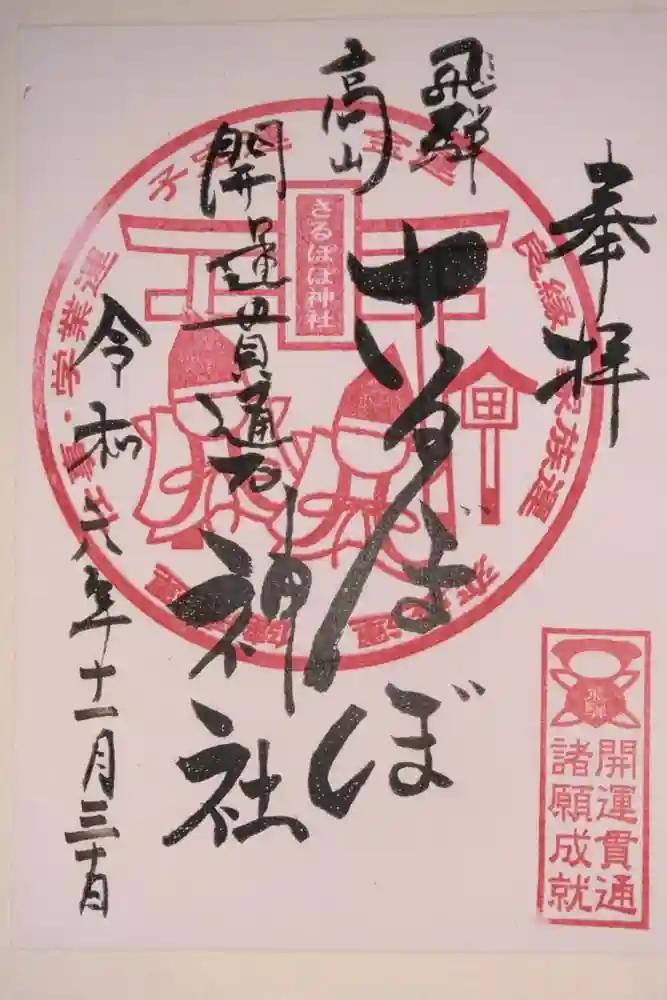 奉拝
飛騨
高山
さるぼぼ
神社
開運貫通石
令和六年十一月三十日
さるぼぼ神社
子宝運
金運
良縁
家族運
学業運
開運貫通
諸願成就
飛騨
田